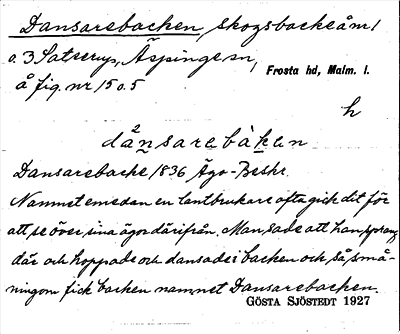 Dansarebacken skogsbacke å nr 1
o. 3 Satserup, Äspinge sn,
å fig. nr 15 o. 5
Frosta hd, Malm. l.
h
dån̥sarebàken
Dansarebacke 1836 Ägo-Beskr.
Namnet emedan en lantbrukare ofta gick dit för
att se över sina ägor därifrån. Man sade att han sprang
där och hoppade och dansade i backen och så små-
ningom fick backen namnet Dansarebacken.
GÖSTA SJÖSTEDT 1927